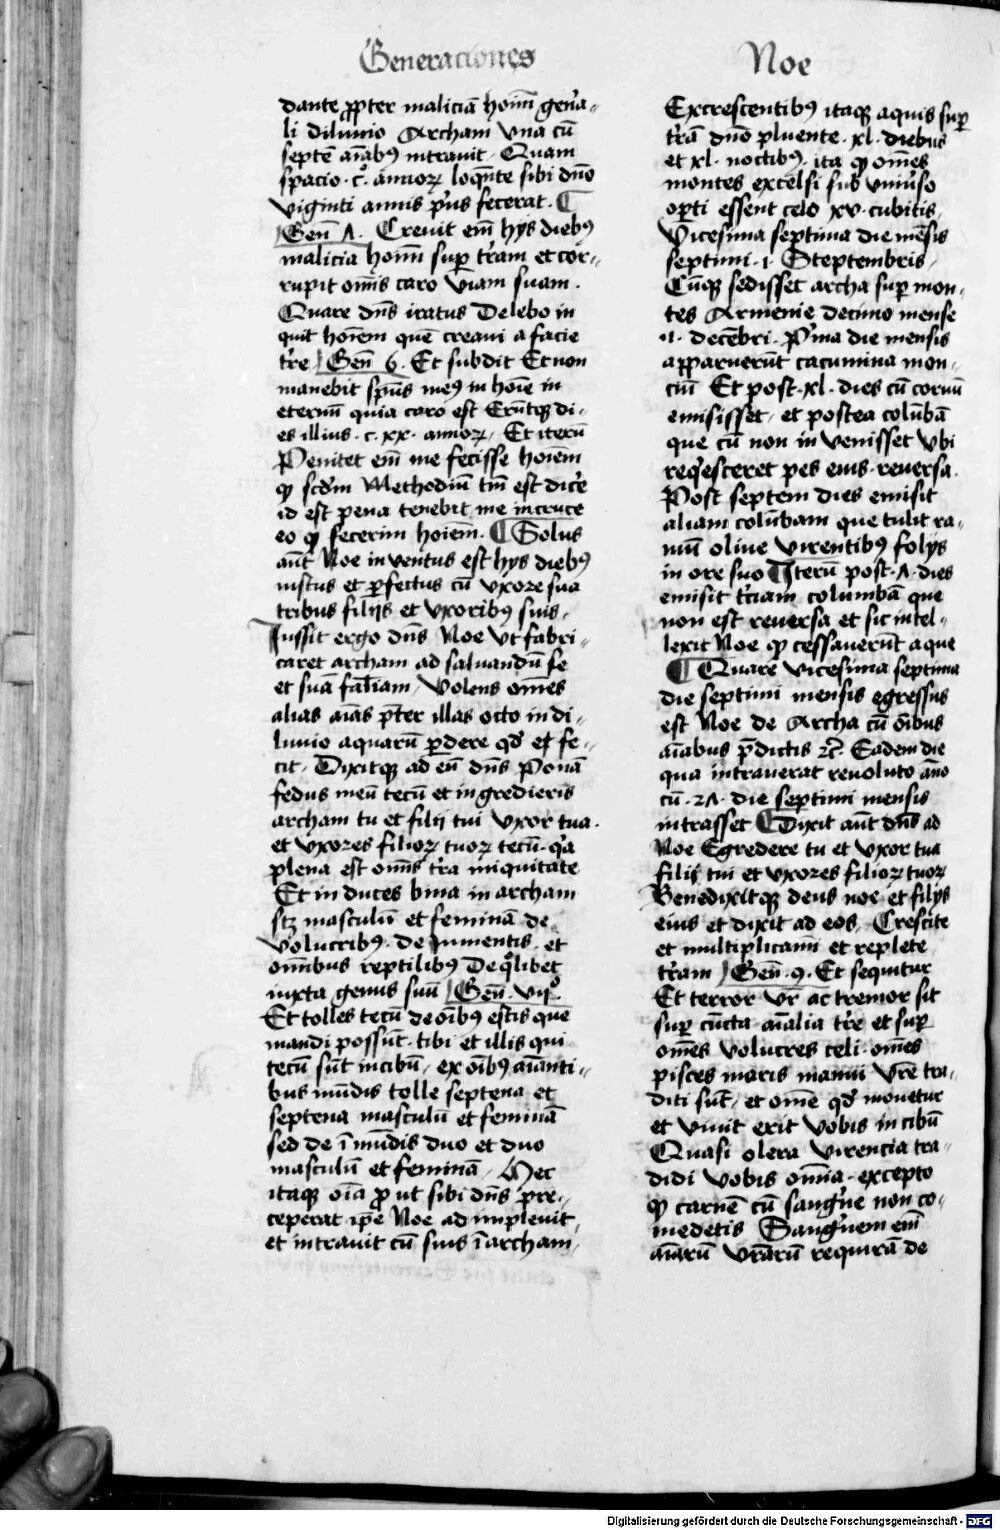 Generaciones Noe
dante ꝓpter maliciā hoīm gen̄a-
li diluuio Archam vna cū
septē aīabꝰ intrauit. Quam
spacio .c. annoꝝ loqn̄te sibi dn̄o
viginti annis pꝰus fecerat. ¶
Gen̄ ʌ. Creuit em̄ hys diebꝰ
malicia hoīm suꝑ tr̄am et cor-
rupit om̄is caro viam suam.
Quare dn̄s iratus Delebo in
quit hoīem quē creaui a facie
tr̄e Gen̄ 6. Et subdit Et non
manebit sp̄us meꝰ in hoīe in
eternū quia caro est Erūtqꝫ di-
es illius .c.xx. annoꝝ. Et iterū
Penitet em̄ me fecisse hoīem
ꝙ scd̄m Methodiū tm̄ est dicr̄e
id est pena tenebit me incruce
eo ꝙ fecerim hoīem. ¶ Solus
aūt Noe inventus est hys diebꝰ
iustus et ꝑfectus cū vxore sua
tribus filijs et vxoribꝰ suis.
Jussit ergo dn̄s Noe vt fabri-
caret archam ad saluandū se
et suā fal̄iam, Volens om̄es
alias aīas p̄ter illas octo in di-
luuio aquarū ꝑdere qd̄ et fe-
cit. Dixitqꝫ ad eū dn̄s Ponā
fedus meū tecū et ingredieris
archam tu et filij tui vxor tua.
et vxores filioꝝ tuoꝝ tecū. qꝛa
plena est om̄is tr̄a iniquitate
Et induces bina in archam
scꝫ masculū et feminā de
volucribꝰ. de Jumentis. et
om̄ibus reptilibꝰ De qͦlibet
iuxta genus suū Gen̄. vijͦ.
Et tolles tecū de oībꝰ escis que
mandi possūt. tibi et illis qui
tecū sūt incibū. ex oībꝰ aīanti-
bus mūdis tolle septena et
septena masculū et feminā
sed de īmūdis duo et duo
masculū et feminā. Hec
itaqꝫ oīa ꝓ ut sibi dn̄s pre-
ceperat ip̄e Noe adimpleuit,
et intrauit cū suis ī archam,
Excrescentibꝰ itaqꝫ aquis suꝑ
tr̄ā dn̄o pluente. xl. diebus
et xl. noctibꝰ. ita ꝙ om̄es
montes excelsi sub vniūso
oꝑti essent celo xv. cubitis,
Vicesima septima die mēsis
septimi .i. Steptembris,
Cūqꝫ sedisset archa suꝑ mon-
tes Armenie decimo mense
.i. decēbri. Pͥma die mensis
apparuerūt cacumina mon-
ciū Et post .xl. dies cū coruū
emisisset. et postea colūbā
que cū non in venisset vbi
reqͥesceret pes eius. reuersa.
Post septem dies emisit
aliam colūbam que tulit ra-
mū oliue virentibꝰ folijs
in ore suo ¶ Iterū post .ʌ. dies
emisit tr̄ciam columbā que
non est reuersa et sic intel-
lexit Noe ꝙ cessauerūt aque
¶ Quare vicesima septima
die septimi mensis egressus
est Noe de Archa cū oībus
aīabus p̄dictis ⁊c̄. Eadem die
qua intrauerat reuoluto āno
cū .2ʌ. die septimi mensis
intrasset ¶ Dixit aūt dn̄s ad
Noe Egredere tu et vxor tua
filij tui et vxores filioꝝ tuoꝝ
Benedixitqꝫ deus noe et filijs
eius et dixit ad eos, Crescite
et multiplicamī et replete
tr̄am Gen̄. 9. Et sequitur
Et terror vr̄ ac tremor sit
suꝑ cūcta aīalia tr̄e et suꝑ
om̄es volucres celi. om̄es
pisces maris manui vr̄e tra-
diti sūt, et om̄e qd̄ mouetur
et viuit erit vobis in cibū
Quasi olera virencia tra-
didi vobis om̄ia. excepto
ꝙ carnē cū sangͥne non co-
medetis Sangͥnem em̄
aīarū vr̄arū requirā de
Digitalisierung gefördert durch die Deutsche Forschungsgemeinschaft - DFG